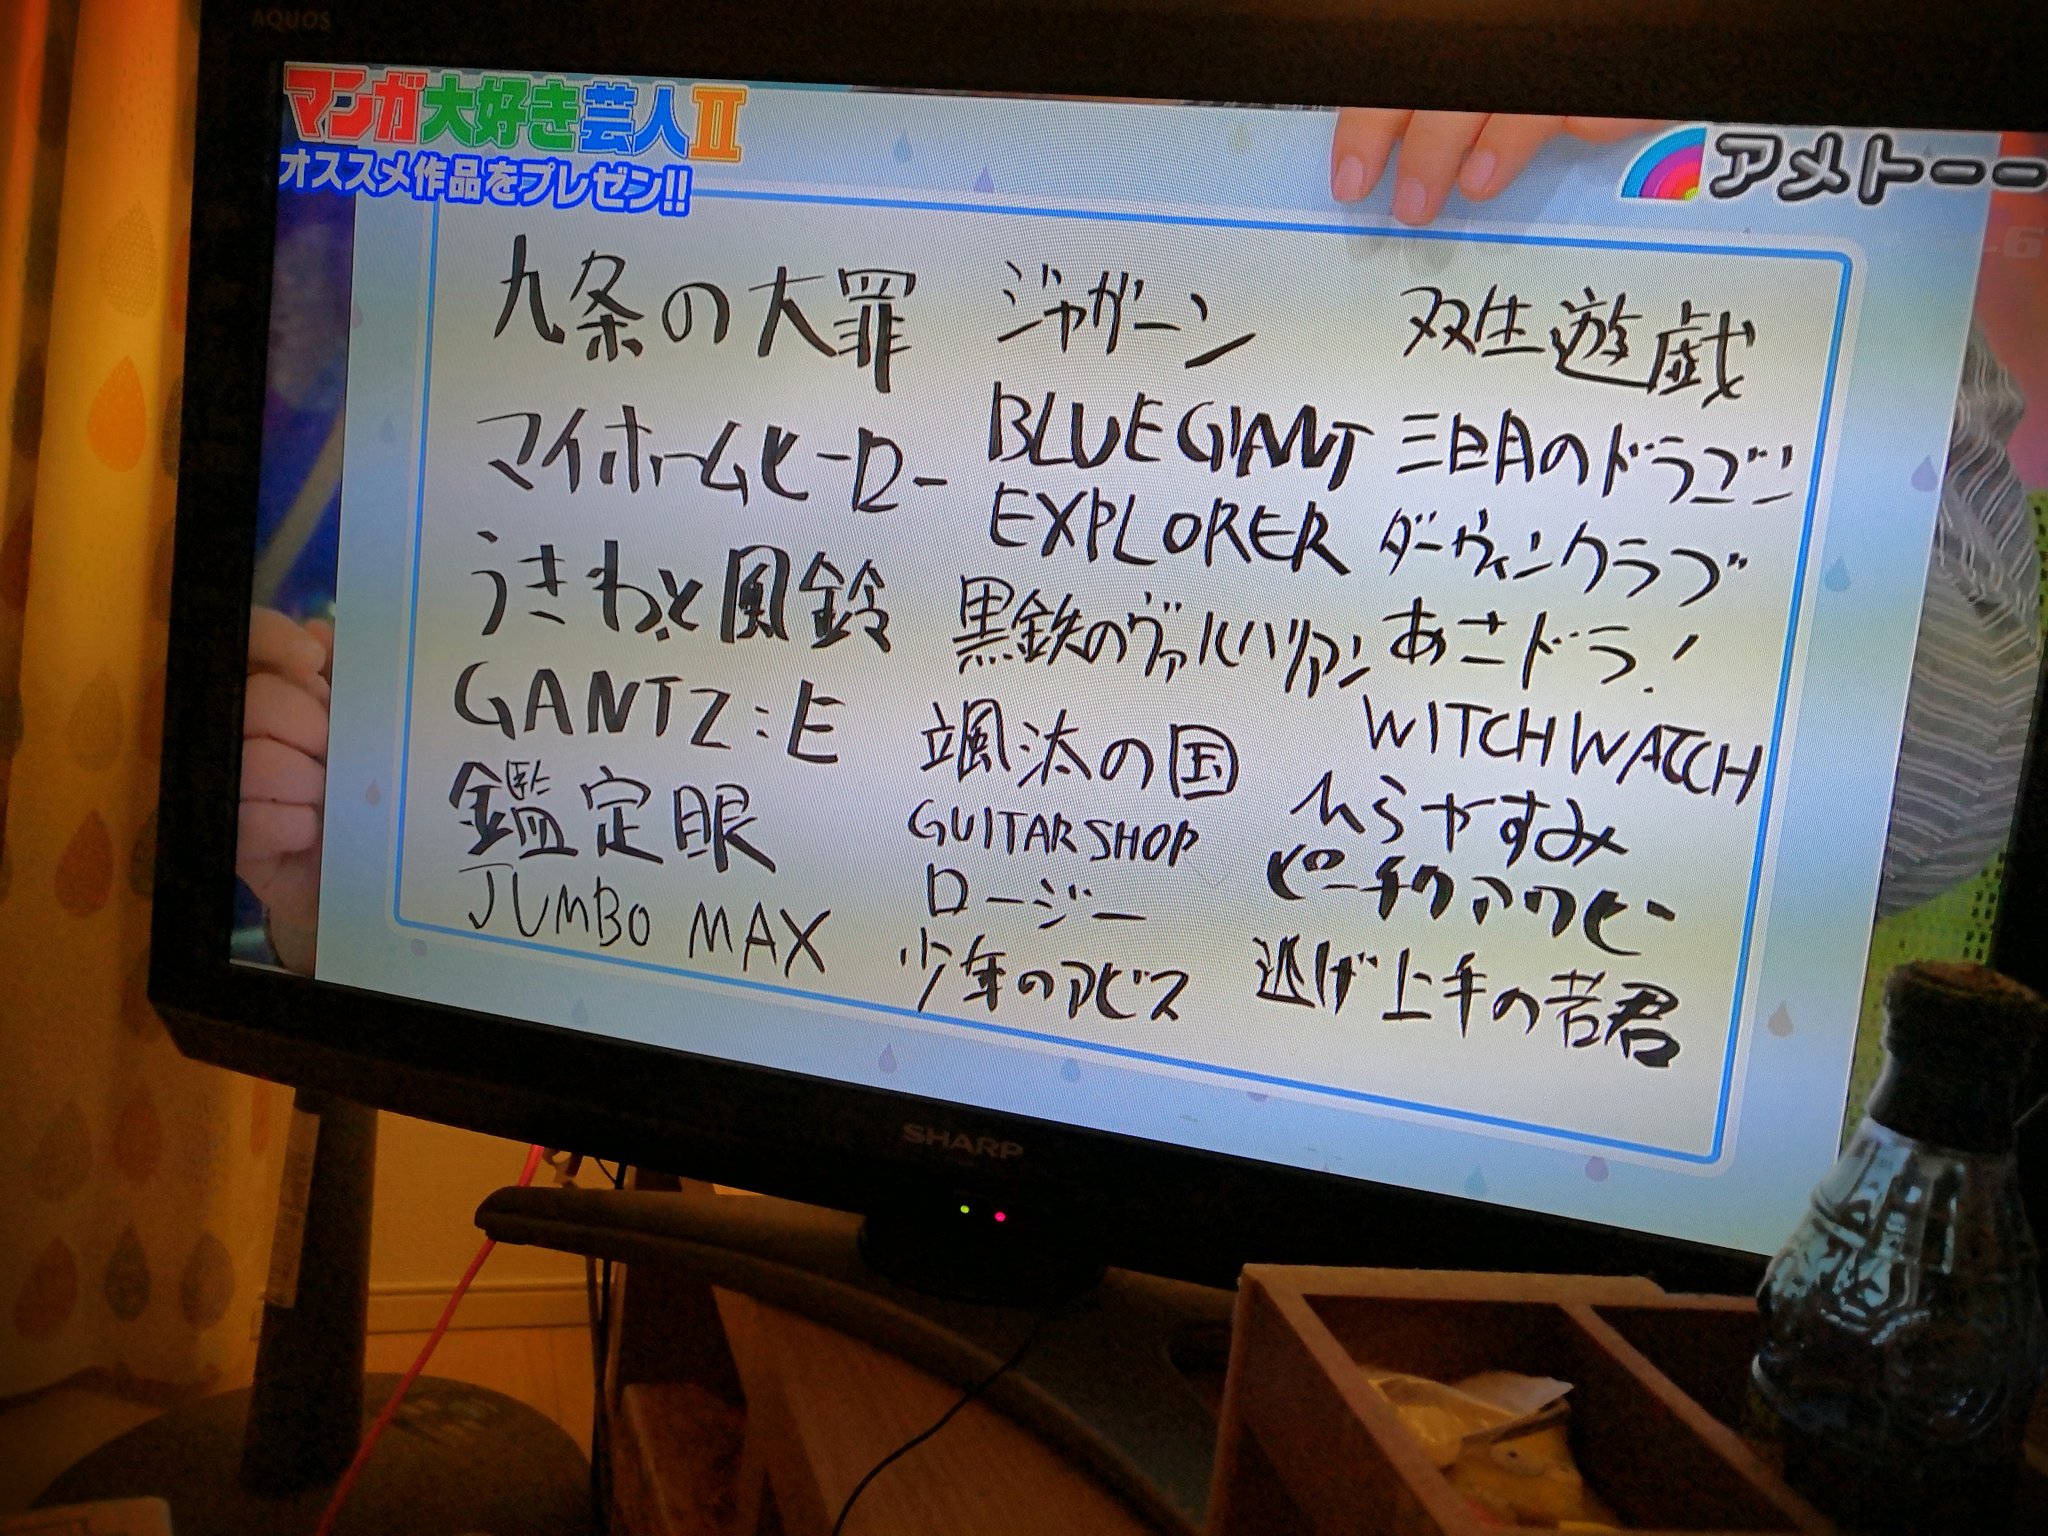 AQUOS
マンガ大好き芸人Ⅱ
オススメ作品をプレゼン!!
アメトーー
九条の大罪
マイホームヒーロー
うきわと風鈴
GANTZ:E
鑑定眼
JUMBO MAX
ジャガーン
BLUE GIANT
EXPLORER
黒鉄のヴァルハリアン
颯汰の国
GUITAR SHOP
ロージー
少年のアビス
双生遊戯
三日月のドラゴン
ダーウィンクラブ
あさドラ!
WITCH WATCH
ひらやすみ
ピーチクアワビー
逃げ上手の若君
SHARP